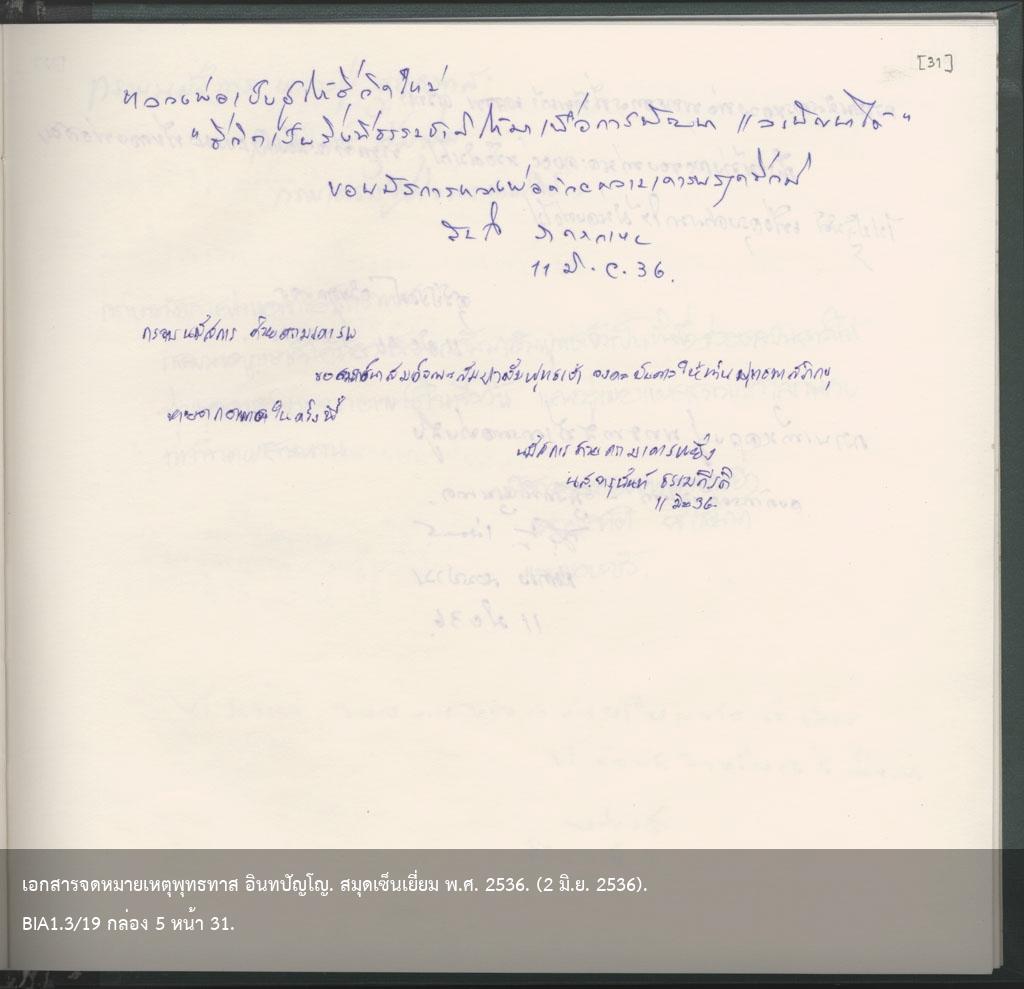 [31]
หลวงพ่อเป็นผู้ให้ชีวิตใหม่
"ชีวิตเป็นสิ่งที่ธรรมชาติให้มาเพื่อการพัฒนา
ขอนมัสการหลวงพ่อด้วยความเคารพรัก
11 มิ.ย. 36.
กราบนมัสการ ด้วยความเคารพ
ขอ สัมมาสัมพุทธเจ้า จงดลบันดาลให้ท่านพุทธทาสภิกขุ
หายจากอาพาธในครั้งนี้
นมัสการด้วยความเคารพยิ่ง
น.ส.จารุนันท์
11 มิย 36
เอกสารจดหมายเหตุพุทธทาส อินทปัญโญ. สมุดเซ็นเยี่ยม พ.ศ. 2536. (2 มิ.ย. 2536).
BIA1.3/19 กล่อง 5 หน้า 31.